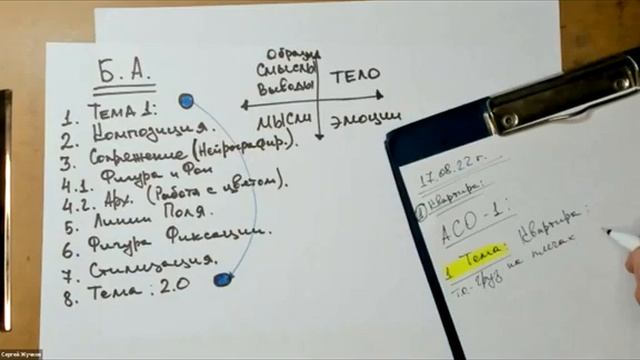 Б. А.
1. Тема 1:
2. Композиция.
3. Сопряжение (Нейрографир.).
4.1. Фигура и Фон
4.2. Арх. (Работа с цветом).
5. Линии Поля.
6. Фигура Фиксации.
7. Стилизация.
8. Тема: 2.0
Образы
Смыслы
Выводы
ТЕЛО
МЫСЛИ
ЭМОЦИИ
17.08.22 г.
Квартира:
АСО-1:
1 Тема: Квартира:
груз на плечах
Сергей Жучков